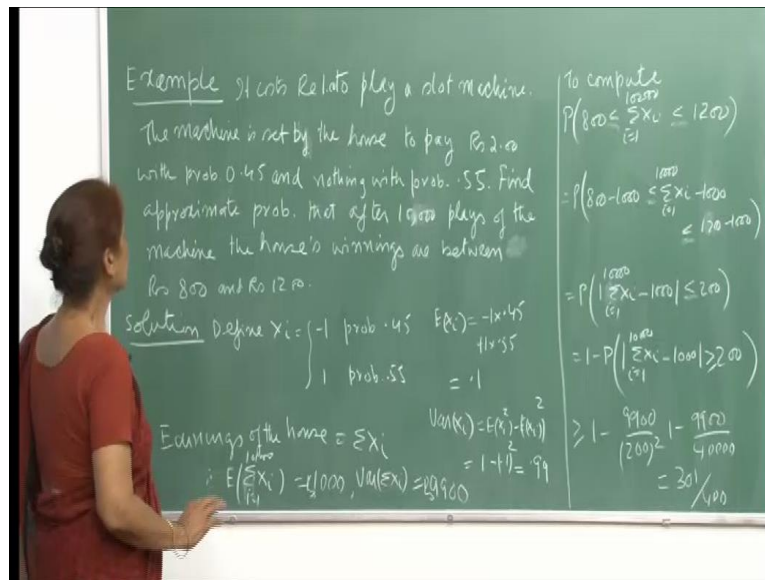 Example It costs Re 1 to play a slot machine.
The machine is set by the house to pay Rs 2.00
with prob 0.45 and nothing with prob. .55. Find
approximate prob. that after 10,000 plays of the
machine the house's winnings are between
Rs 800 and Rs 1200.
Solution Define Xi = { -1 prob .45
1 prob .55
E(Xi) = -1x.45
+1x.55
= .1
Var(Xi) = E(Xi²) - E(Xi))²
= 1 - (.1)² = .99
Earnings of the house = ΣXi
∴ E(Σ Xi) = 1000, Var(ΣXi) = 9900
i=1
To compute
P(800 ≤ Σ Xi ≤ 1200)
i=1
= P(800-1000 ≤ Σ Xi - 1000
i=1
≤ 1200-1000)
10000
= P(|Σ Xi - 1000| ≤ 200)
i=1
10000
= 1 - P(|Σ Xi - 1000| ≥ 200)
i=1
≥ 1 - 9900/(200)² 1 - 9900/40000
= 301/400